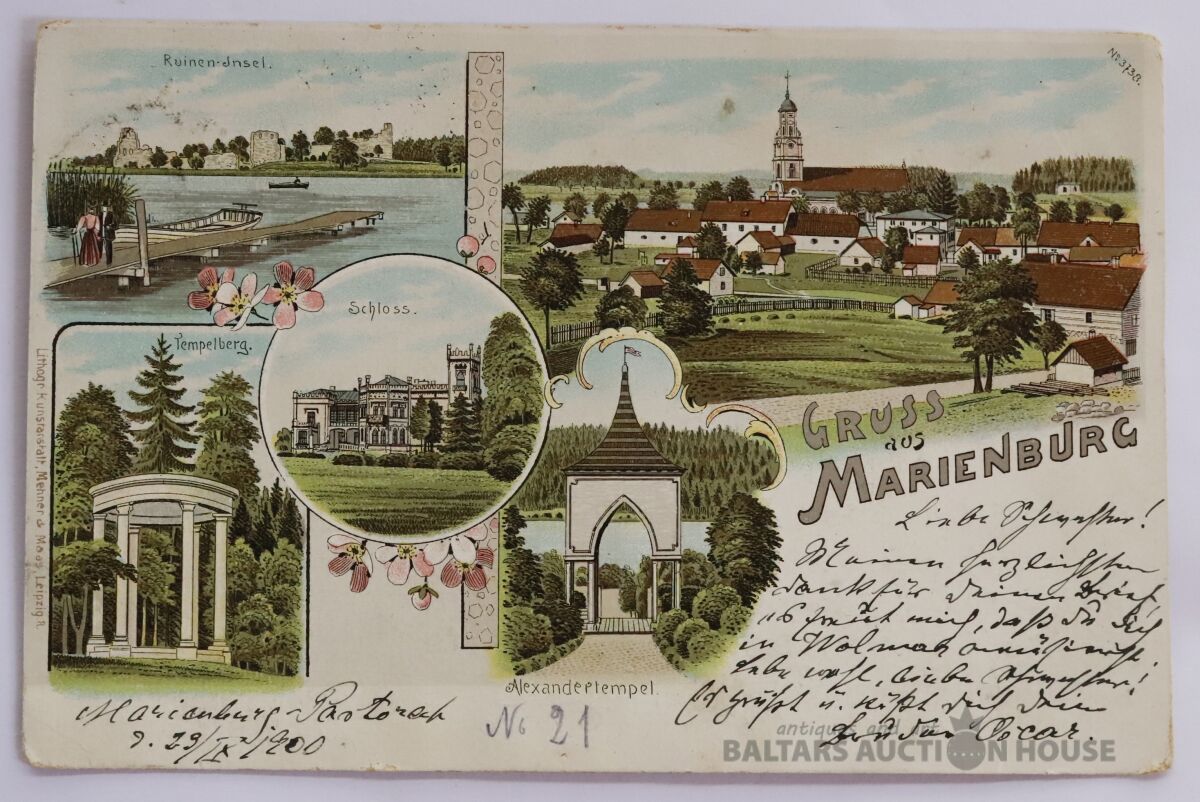 Ruinen-Insel.
No 3738.
Schloss.
Tempelberg.
GRUSS
aus
MARIENBURG
Lithogr. Kunstanstalt, Mehner & Maas, Leipzig R.
Alexandertempel.
Liebe Schwester!
Meinen herzlichsten
Dank für Deinen Brief,
es freut mich, daß Du Dich
in Wolmar amüsierst.
Lebe wohl, liebe Schwester!
Es grüßt u. küßt Dich Dein
Bruder Oscar.
Marienburg-Pastorat
d. 29/IX 1900
No 21
antiques and art
BALTARS AUCTION HOUSE